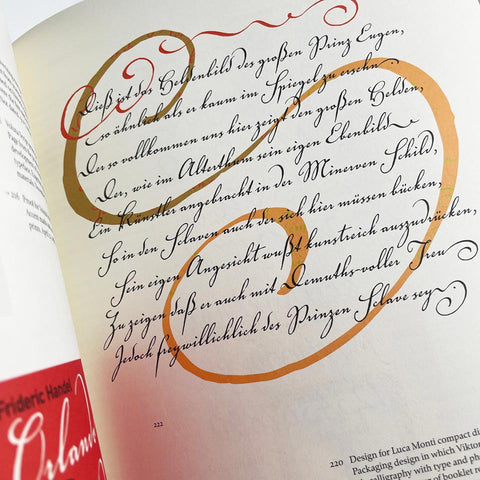 Dieß ist das Heldenbild des großen Prinz Eugen,
so ähnlich als er kaum im Spiegel zu ersehn.
Der so vollkommen uns hier zeigt den großen Helden,
Der, wie im Alterthum sein eigen Ebenbild
Ein Künstler angebracht in der Minerven Schild,
So in den Sclaven auch der sich hier müssen bücken,
Sein eigen Angesicht wußt kunstreich auszudrücken,
Zu zeigen daß er auch mit Demuths-voller Treu
Jedoch freywillichlich des Prinzen Sclave sey.
222
220 Design for Luca Monti compact di
Packaging design in which Viktor
calligraphy with type and ph
of booklet re
206 Proof for
Frideric Handel
Orlando